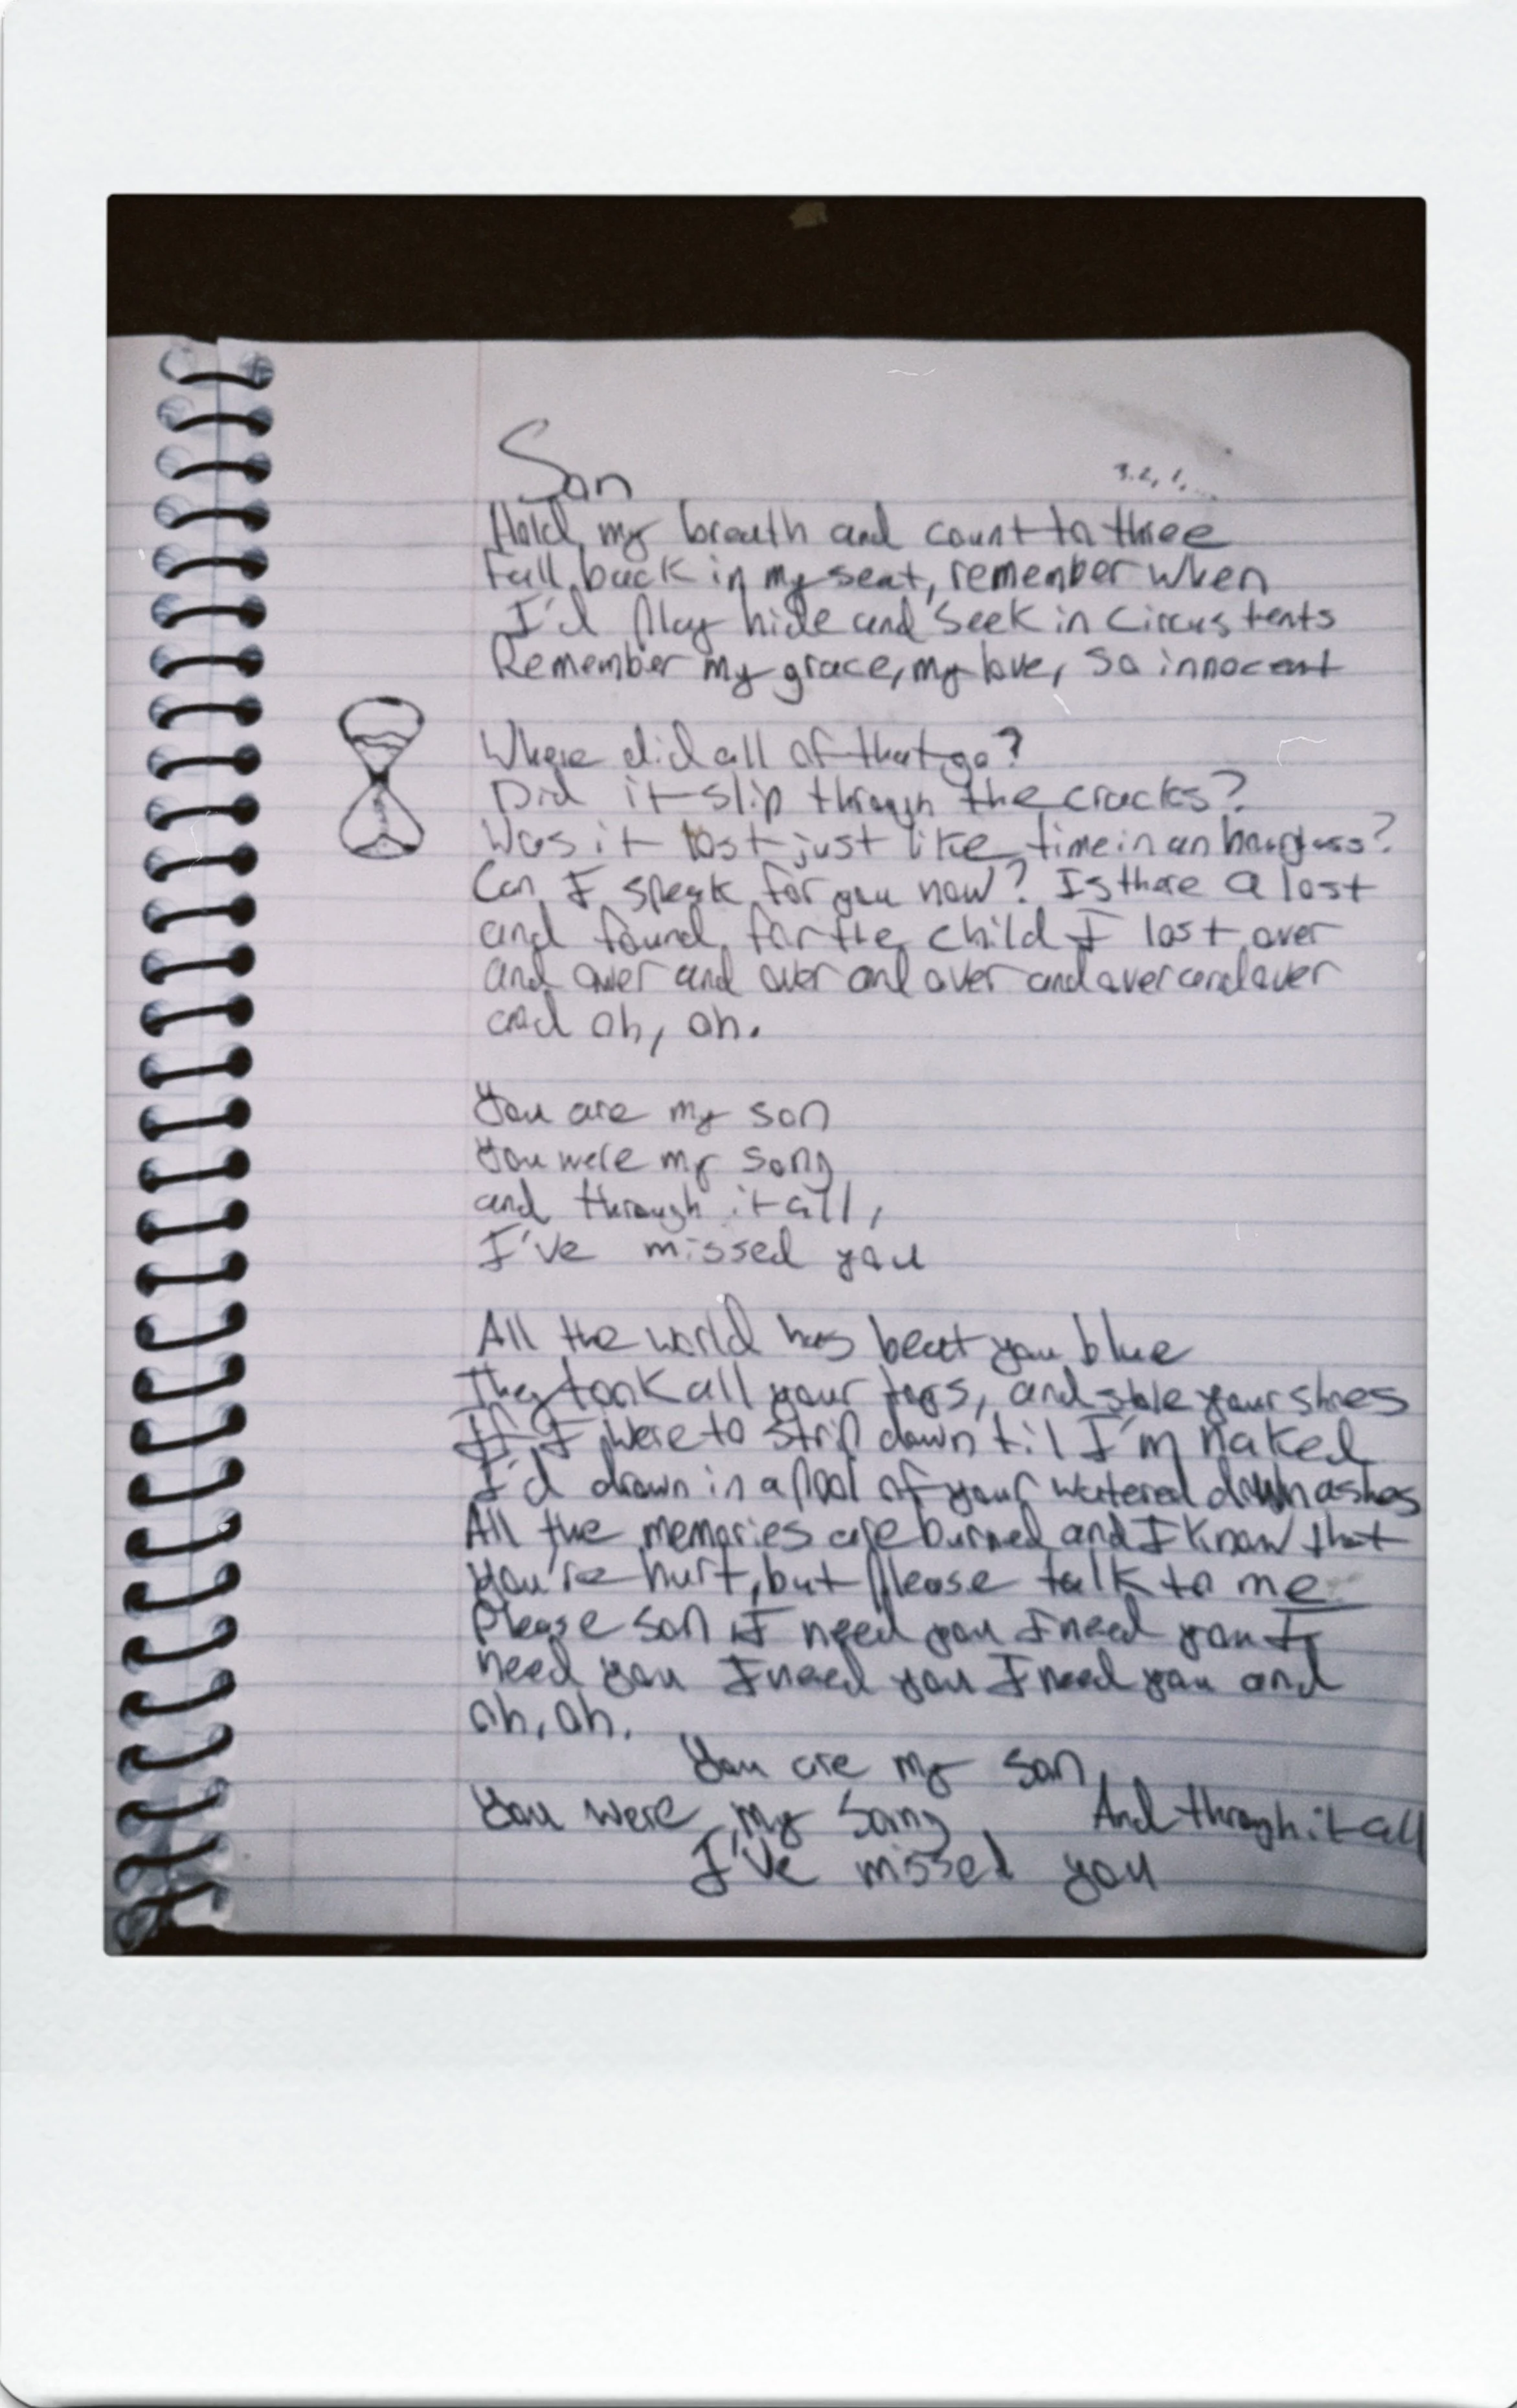 Son
3, 2, 1, ...
Hold my breath and count to three
Fall back in my seat, remember when
I'd play hide and seek in circus tents
Remember my grace, my love, so innocent
Where did all of that go?
Did it slip through the cracks?
Was it lost just like time in an hourglass?
Can I speak for you now? Is there a lost
and found for the child I lost over
and over and over and over and over and over
and oh, oh.
You are my son
You were my song
and through it all,
I've missed you
All the world has beat you blue
They took all your toys, and stole your shoes
If I were to strip down til I'm naked
I'd drown in a pool of your watered down ashes
All the memories are burned and I know that
you're hurt, but please talk to me
Please son I need you I need you I
need you I need you I need you and
oh, oh.
You are my son
You were my song And through it all
I've missed you